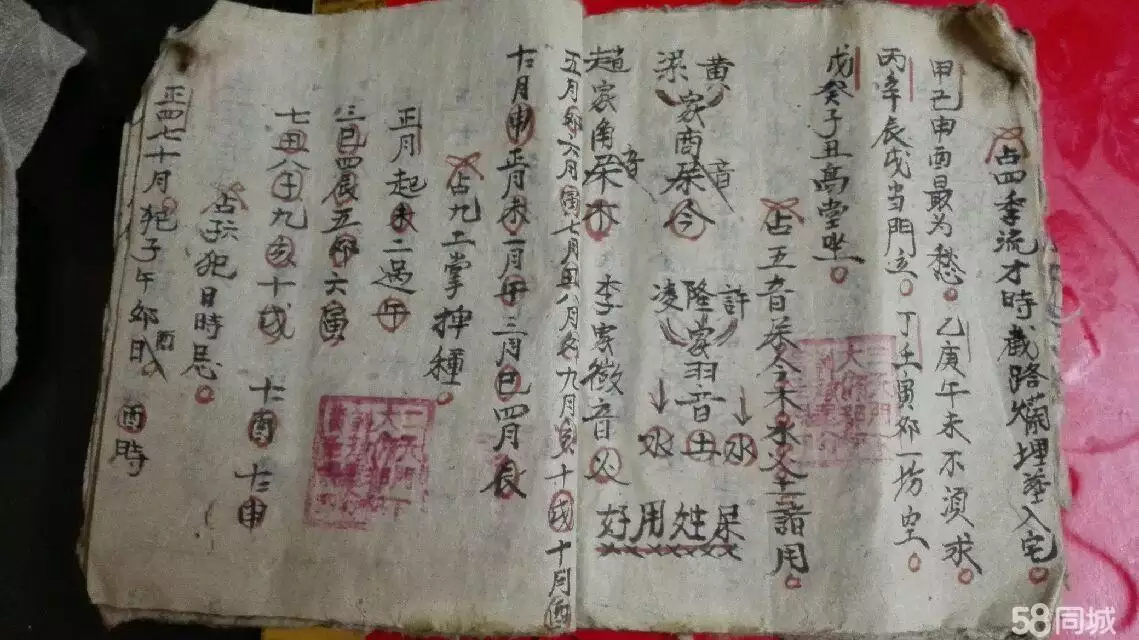 占四季流才時截路爛埋葬入宅
甲己申酉最为愁乙庚午未不須求
丙辛辰戌当門立丁壬寅卯一坊空
戊癸子丑高堂坐
占五音属金木水火土諸用
黄家商属音金 許
隆家羽音土 水
梁 凌 水
好用姓呆
趙家角属音木 李家徵音火
五月卯六月寅七月丑八月子九月亥十月戌十月酉
十二月申正月未一月午二月巳四月辰
占九工掌抻種
正月起未二過午
三巳四辰五卯六寅
七丑八子九亥十戌 十酉 十二申
占 犯日時忌
正四七十月犯子午卯酉日 酉時
58同城